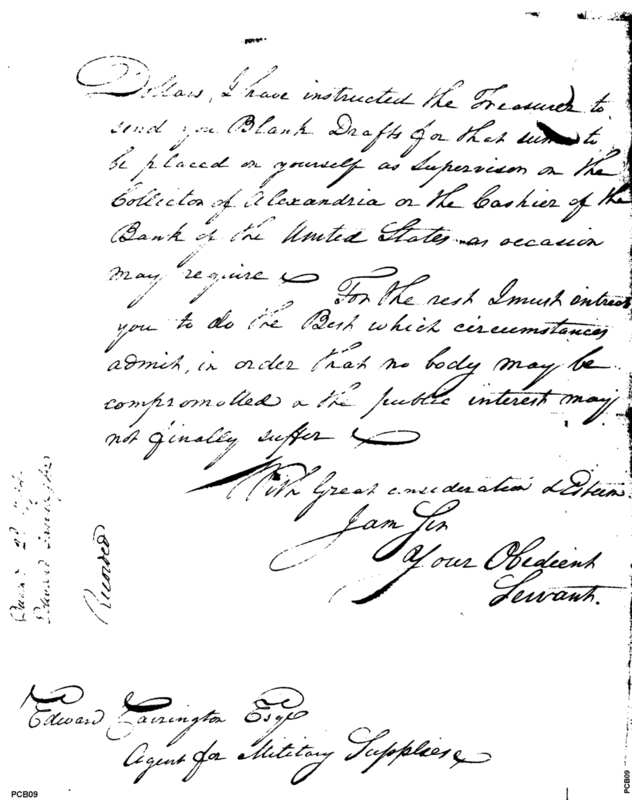 Dollars, I have instructed the Treasurer to
send you Blank Drafts for that sum to
be placed on yourself as Supervisor on the
Collector of Alexandria or the Cashier of the
Bank of the United States as occasion
may require
For the rest I must intreat
you to do the Best which circumstances
admit, in order that no body may be
compromitted & the public interest may
not finally suffer
With Great consideration & Esteem
I am Sir
Your Obedient
Servant.
Recorded
Edward Carrington Esqr
Agent for Military Supplies
PCB09
PCB09